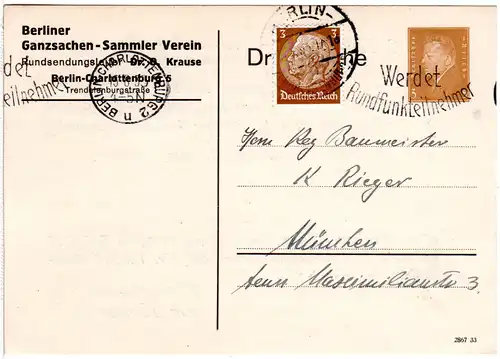 Berliner
Ganzsachen-Sammler Verein
Rundsendungsleiter Dr. G. Krause
Berlin-Charlottenburg 5
Trendelenburgstraße
BERLIN-CHARLOTTENBURG 2
n
BERLIN-
Drucksache
3 3
Deutsches Reich
Werdet
Rundfunkteilnehmer
Herrn Reg Baumeister
K Rieger
München
Maximilianstr 3.
2867 33